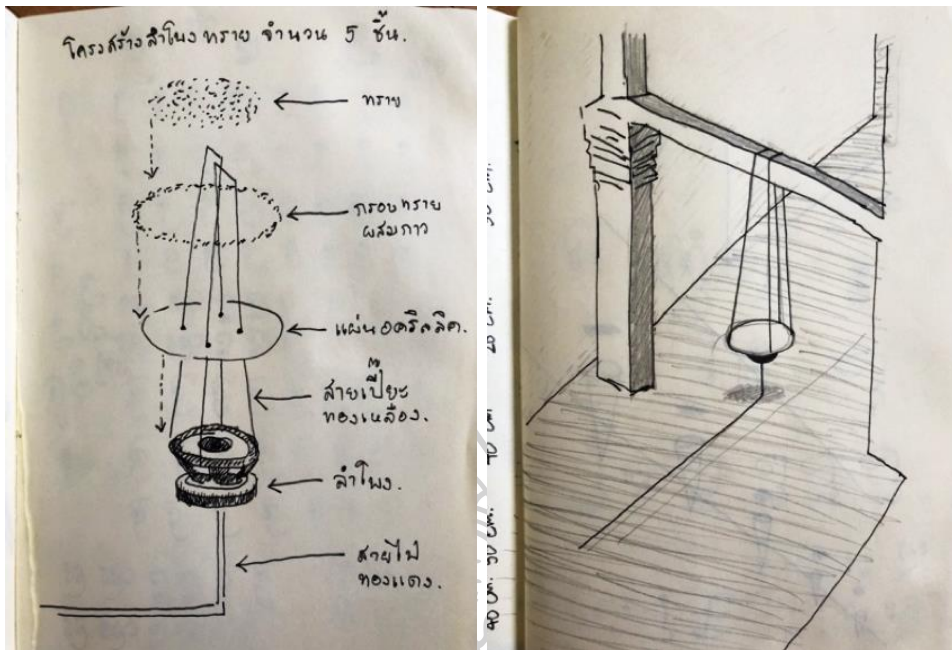 โครงสร้างลำโพงทราย จำนวน 5 ชิ้น.
ทราย
กรอบทราย
ผสมกาว
แผ่นอคริลลิค.
สายเปี๊ยะ
ทองเหลือง.
ลำโพง.
สายไฟ
ทองแดง.
cm.
40 cm
80 cm. 50 cm.